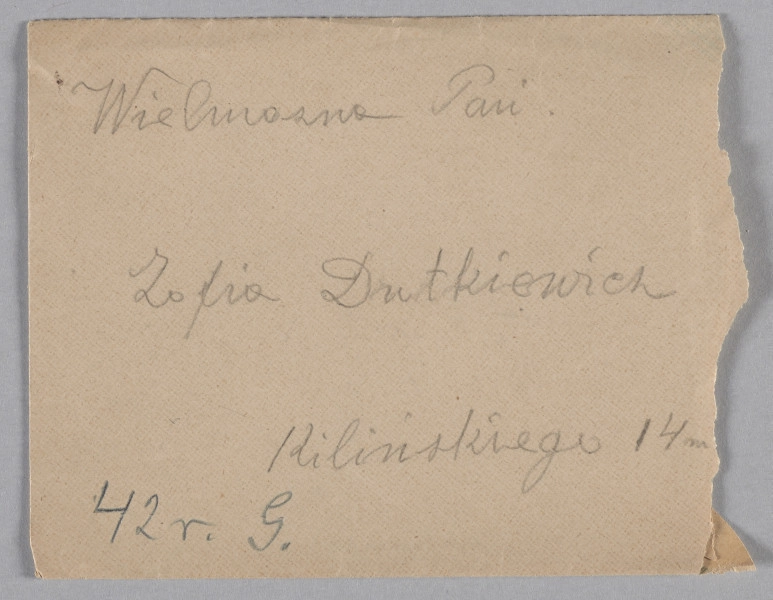 Wielmożna Pani.
Zofia Dutkiewicz
Kilińskiego 14 m
42 r. G.